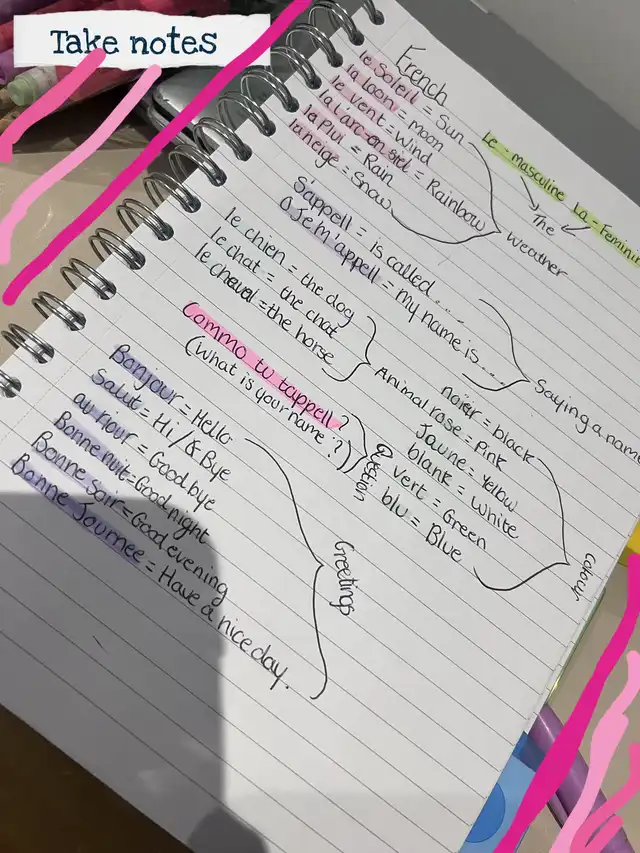 Take notes
French
le Soleil = Sun
la loon = moon
le vent = Wind
la l'arc-en siel = Rainbow
la Plui = Rain
la neige = Snow
Weather
Le - masculine La = Feminin
The
S'appell = is called ...
Je m'appell = my name is ....
Saying a name
le chien = the dog
le chat = the chat
le cheval = the horse
Animal
Commo tu tappell?
(What is your name?)
Question
noier = black
rose = Pink
Jaune = Yellow
blank = white
vert = Green
blu = Blue
Colour
Bonjour = Hello
Salut = Hi/& Bye
au riour = Goodbye
Bonne nuit = Good night
Bonne Soir = Good evening
Bonne Journee = Have a nice day.
Greetings